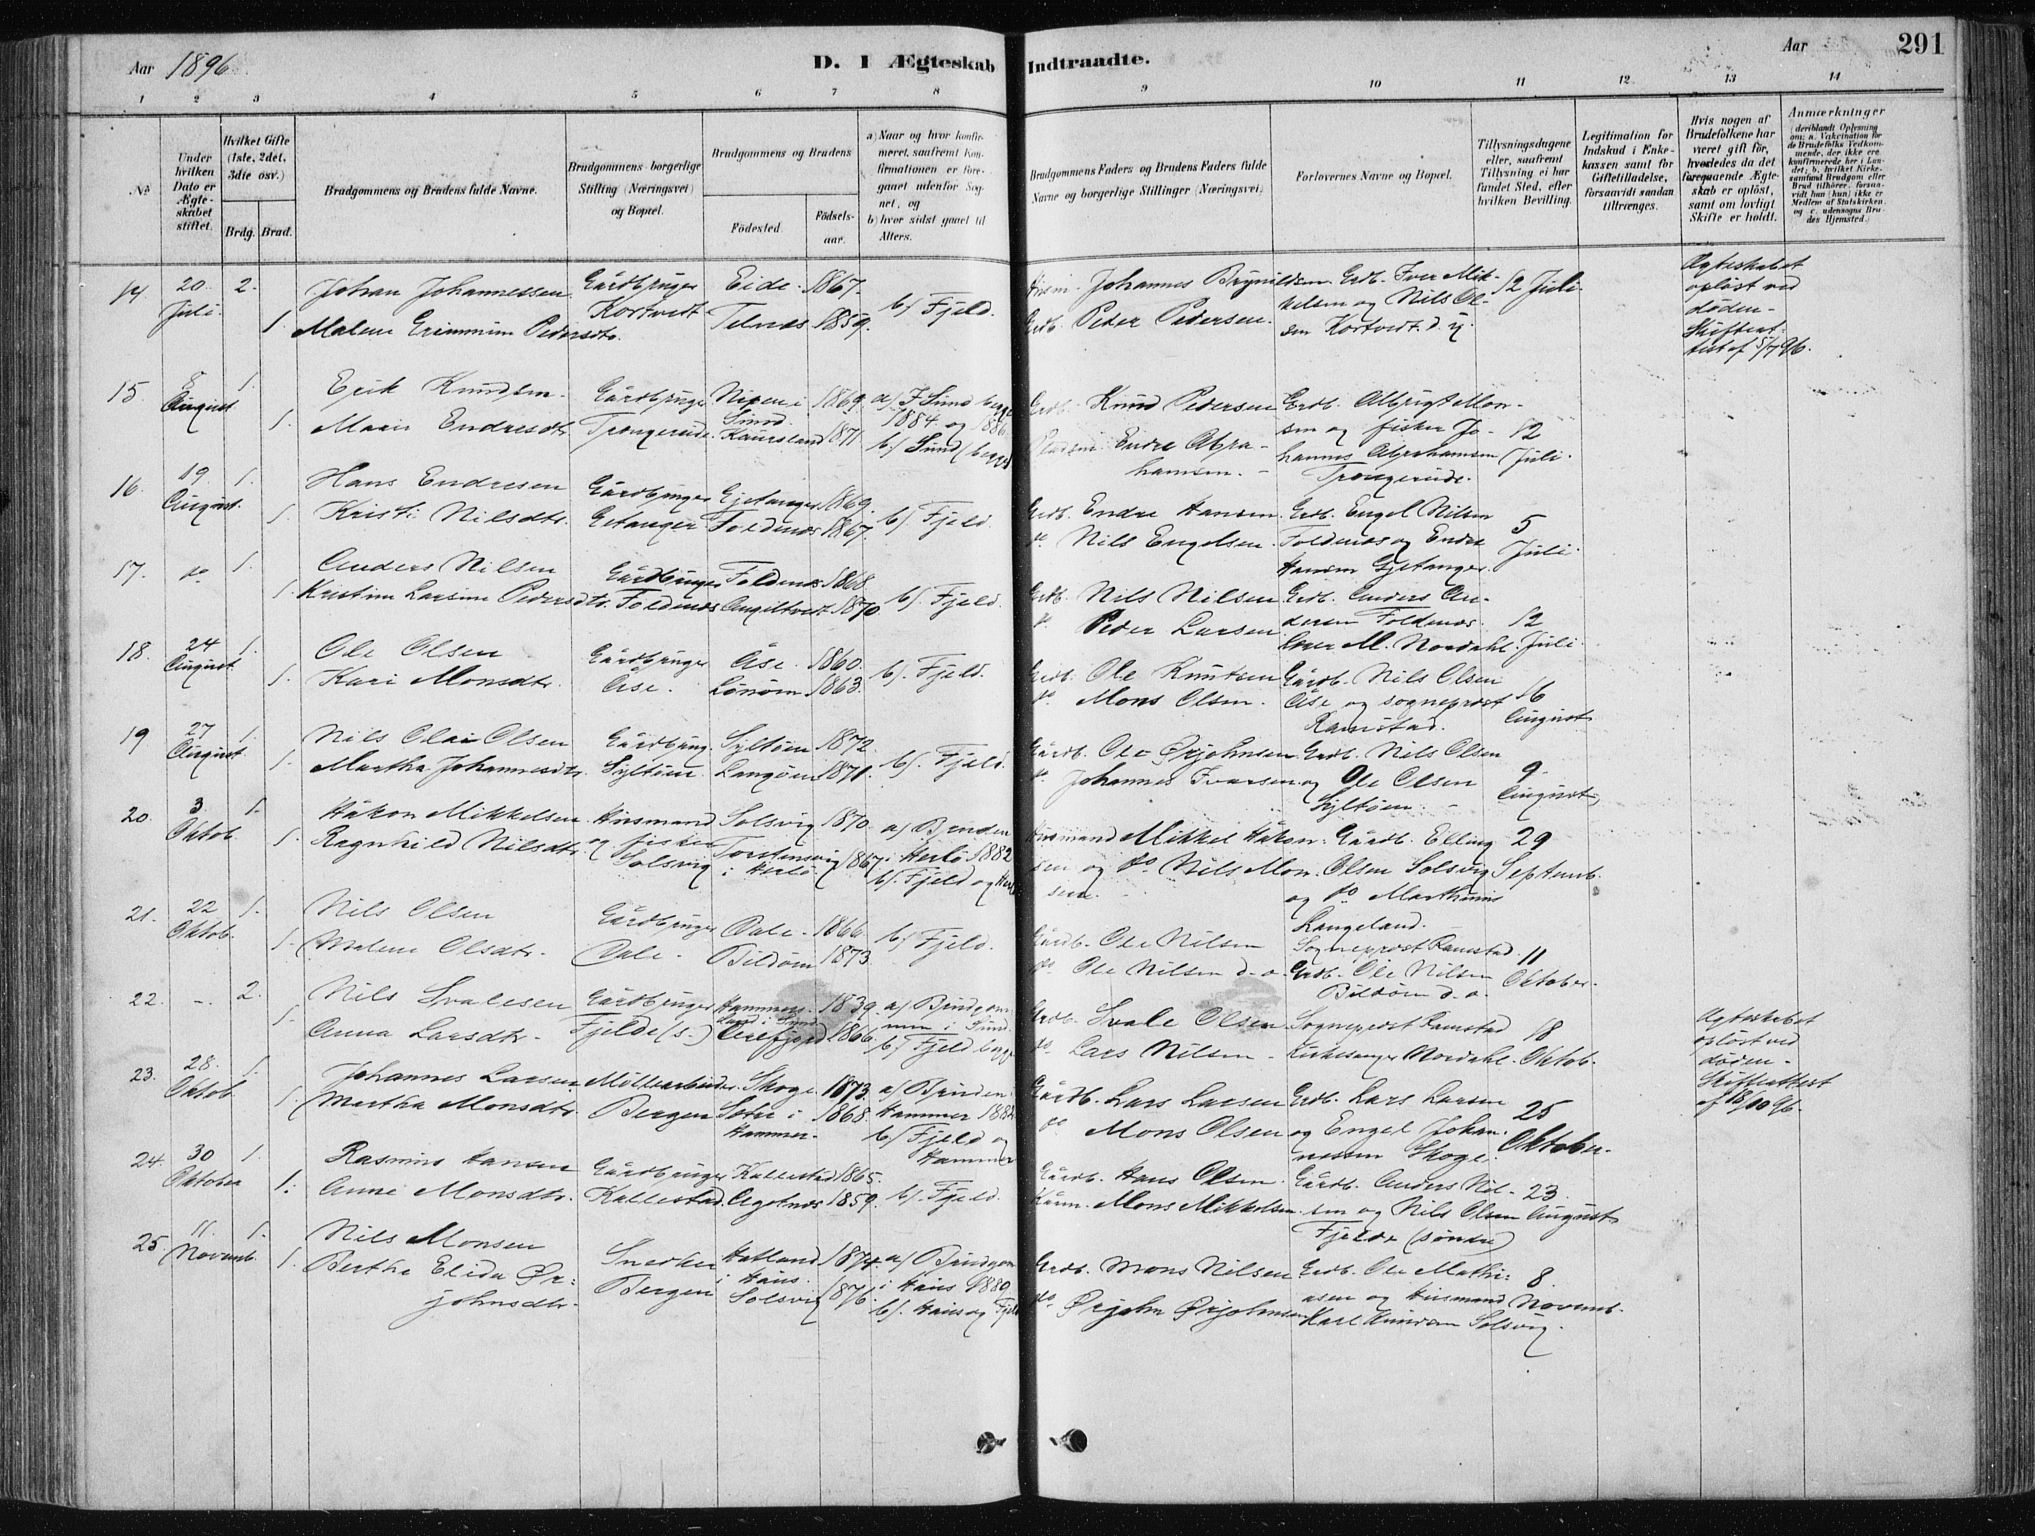 Aar 1896
D. I Ægteskab Indtraadte.
Aar
291
1 2 3 4 5 6 7 8 9 10 11 12 13 14
No
Under hvilken Dato er Ægteskabet stiftet.
Hvilket Gifte (1ste, 2det, 3die osv.)
Brdg. Brud.
Brudgommens og Brudens fulde Navne.
Brudgommens borgerlige Stilling (Næringsvei) og Bopæl.
Brudgommens og Brudens
Fødested.
Fødselsaar.
a) Naar og hvor konfirmeret, saafremt Konfirmationen er foregaaet udenfor Sognet, og
b) hvor sidst gaaet til Alters.
Brudgommens Faders og Brudens Faders fulde Navne og borgerlige Stillinger (Næringsvei)
Forlovernes Navne og Bopæl.
Tillysningsdagene eller, saafremt Tillysning ei har fundet Sted, efter hvilken Bevilling.
Legitimation for Indskud i Enkekassen samt for Giftetilladelse, forsaavidt saadan tiltrænges.
Hvis nogen af Brudefolkene har været gift før, hvorledes da det foregaaende Ægteskab er opløst, samt om lovligt Skifte er holdt.
Anmærkninger
14 20 Juli 2. Johan Johannessen Gårdbruger Kortvedt Eide 1867. b) Fjeld. Husm. Johannes Brynildsen Grdb. Iver Mikkelsen og Nils Olsen Kortvedt d. y. 12 Juli
1. Malene Pedersdtr. Telnæs 1859. Grdb. Peder Pedersen
Ægteskabet opløst ved døden. Skifteattest af 5/7 96.
15 5 August 1. Erik Knudsen Gårdbruger Trongereide Sund 1869. a) I Sund begge 1884 og 1886 Grdb. Knud Pedersen Grdb. Albrigt Monsen og fisker Johannes Abrahamsen Trongereide. 12 Juli
1. Endresdtr. Kausland 1871. b) Sund (begge) Endre Abrahamsen.
16. 19 August 1. Hans Endresen Gårdbruger Getanger Gjetanger 1869. b) Fjeld. Grdb. Endre Hansen Grdb. Engel Nilsen Foldenæs og Endre Hansen Gjetanger. 5 Juli
1. Kristi Nilsdtr. Foldenæs 1867. do Nils Engelsen
17. do 1. Anders Nilsen Gårdbruger Foldenæs Foldenæs 1868. b) Fjeld. Grdb. Nils Nilsen Grdb. Anders Andersen Foldenæs. M. Nordahl 12 Juli
1. Kristine Larsine Pedersdtr. Angiltveit 1870. do Peder Larsen
18. 24 August 1. Ole Olsen Gårdbruger Åse. Åse. 1860. b) Fjeld. Grdb. Ole Knutsen Gårdb. Nils Olsen Åse og sogneprest Ramstad. 16 August
1. Kari Monsdtr. Lönöen 1863. do Mons Olsen.
19 27 August 1. Nils Olai Olsen Gårdbrug. Syltöen Syltöen 1872. b) Fjeld. Gårdb. Ole Ørjohnsen Grdb. Nils Olsen og Ole Olsen Syltöen. 9. August
1. Martha Johannesdtr. Langöen 1871. do Johannes Ivarsen
20. 3. Oktob. 1. Håkon Mikkelsen Husmand og fisker Solsvig Solsvig 1870. a) Bruden i Herlö 1882 b) Fjeld og Husmand Mikkel Håkonsen og do Nils Monsen. Gårdb. Elling Olsen Solsvig og do Marthinus Langeland. 29 Septemb.
1. Ragnhild Nilsdtr. Torstensvig i Herlö 1867
21. 22 Oktob. 1. Nils Olsen Gårdbruger Dale. Dale. 1866. b) Fjeld. Gårdb. Ole Nilsen Sogneprest Ramstad Grdb. Ole Nilsen Bildöen d. o. 11 Oktober.
1. Malene Olsdtr. Bildöen 1873. do Ole Nilsen d. o.
22. - 2. Nils Svalesen Gårdbruger Fjelde (s.) Hammersland i Sund 1839. a) Brudgommen i Sund. b) Fjeld begge Grdb. Svale Olsen Sogneprest Ramstad Kirkesanger Nordahl. 18 Oktob.
1. Anna Larsdtr. 1866. do Lars Nilsen
Ægteskabet opløst ved døden. Skifteattest af 18/10 96.
23. 28. Oktob. 1. Johannes Larsen Møllearbeider Bergen Skoge 1873. a) Bruden Hammer b) Fjeld og Hammer Gårdb. Lars Larsen Grdb. Lars Larsen og Engel Johannessen Skoge. 25 Oktober.
1. Martha Monsdtr. i Hammer. 1868. do Mons Olsen
24. 30 Oktober 1. Rasmus Hansen Gårdbruger Kallestad Kallestad 1865. b) Fjeld. Gårdb. Hans Olsen. Gårdb. Anders Nilsen og Nils Olsen Fjelde (søndre) 23 August
1. Anne Monsdtr. Agotnæs 1859. Mons Mikkelsen
25. 11. Novemb. 1. Nils Monsen Snedker Bergen Hatland i Haus. 1874. a) Brudgom i Haus b) Haus og Fjeld Grdb. Mons Nilsen Grdb. Ole Mathiasen og Husmand Karl Knudsen Solsvig. 8. Novemb.
1. Berthe Elida Ørjohnsdtr. Solsvig 1876. do Ørjohn Ørjohnsen